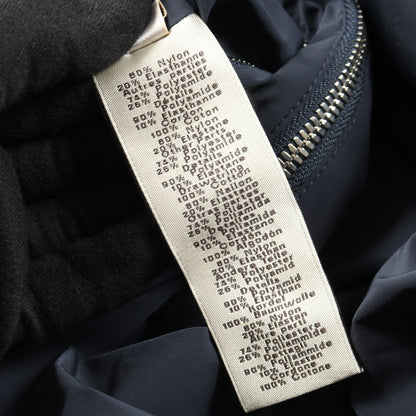 80% Nylon
20% Elasthanne
Autres parties
74% Polyester
26% Polyamide
Détails
90% Polyamide
10% Elasthanne
Cordon
100% Coton
80% Nylon
20% Elastane
Other parts
74% Polyester
26% Polyamide
Details
90% Polyamide
10% Elastane
Drawstring
100% Cotton
80% Nailon
20% Elastano
Otras partes
74%
26%
90%
10% Elastano
100% Algodón
80% Nylon
20% Elastan
Andere Teile
74% Polyester
26% Polyamid
Details
90% Polyamid
10% Elastan
100% Baumwolle
80% Nylon
20% Elastan
Altre parti
74% Poliestere
26% Poliammide
Dettagli
90% Poliammide
10% Elastan
Cordone
100% Cotone